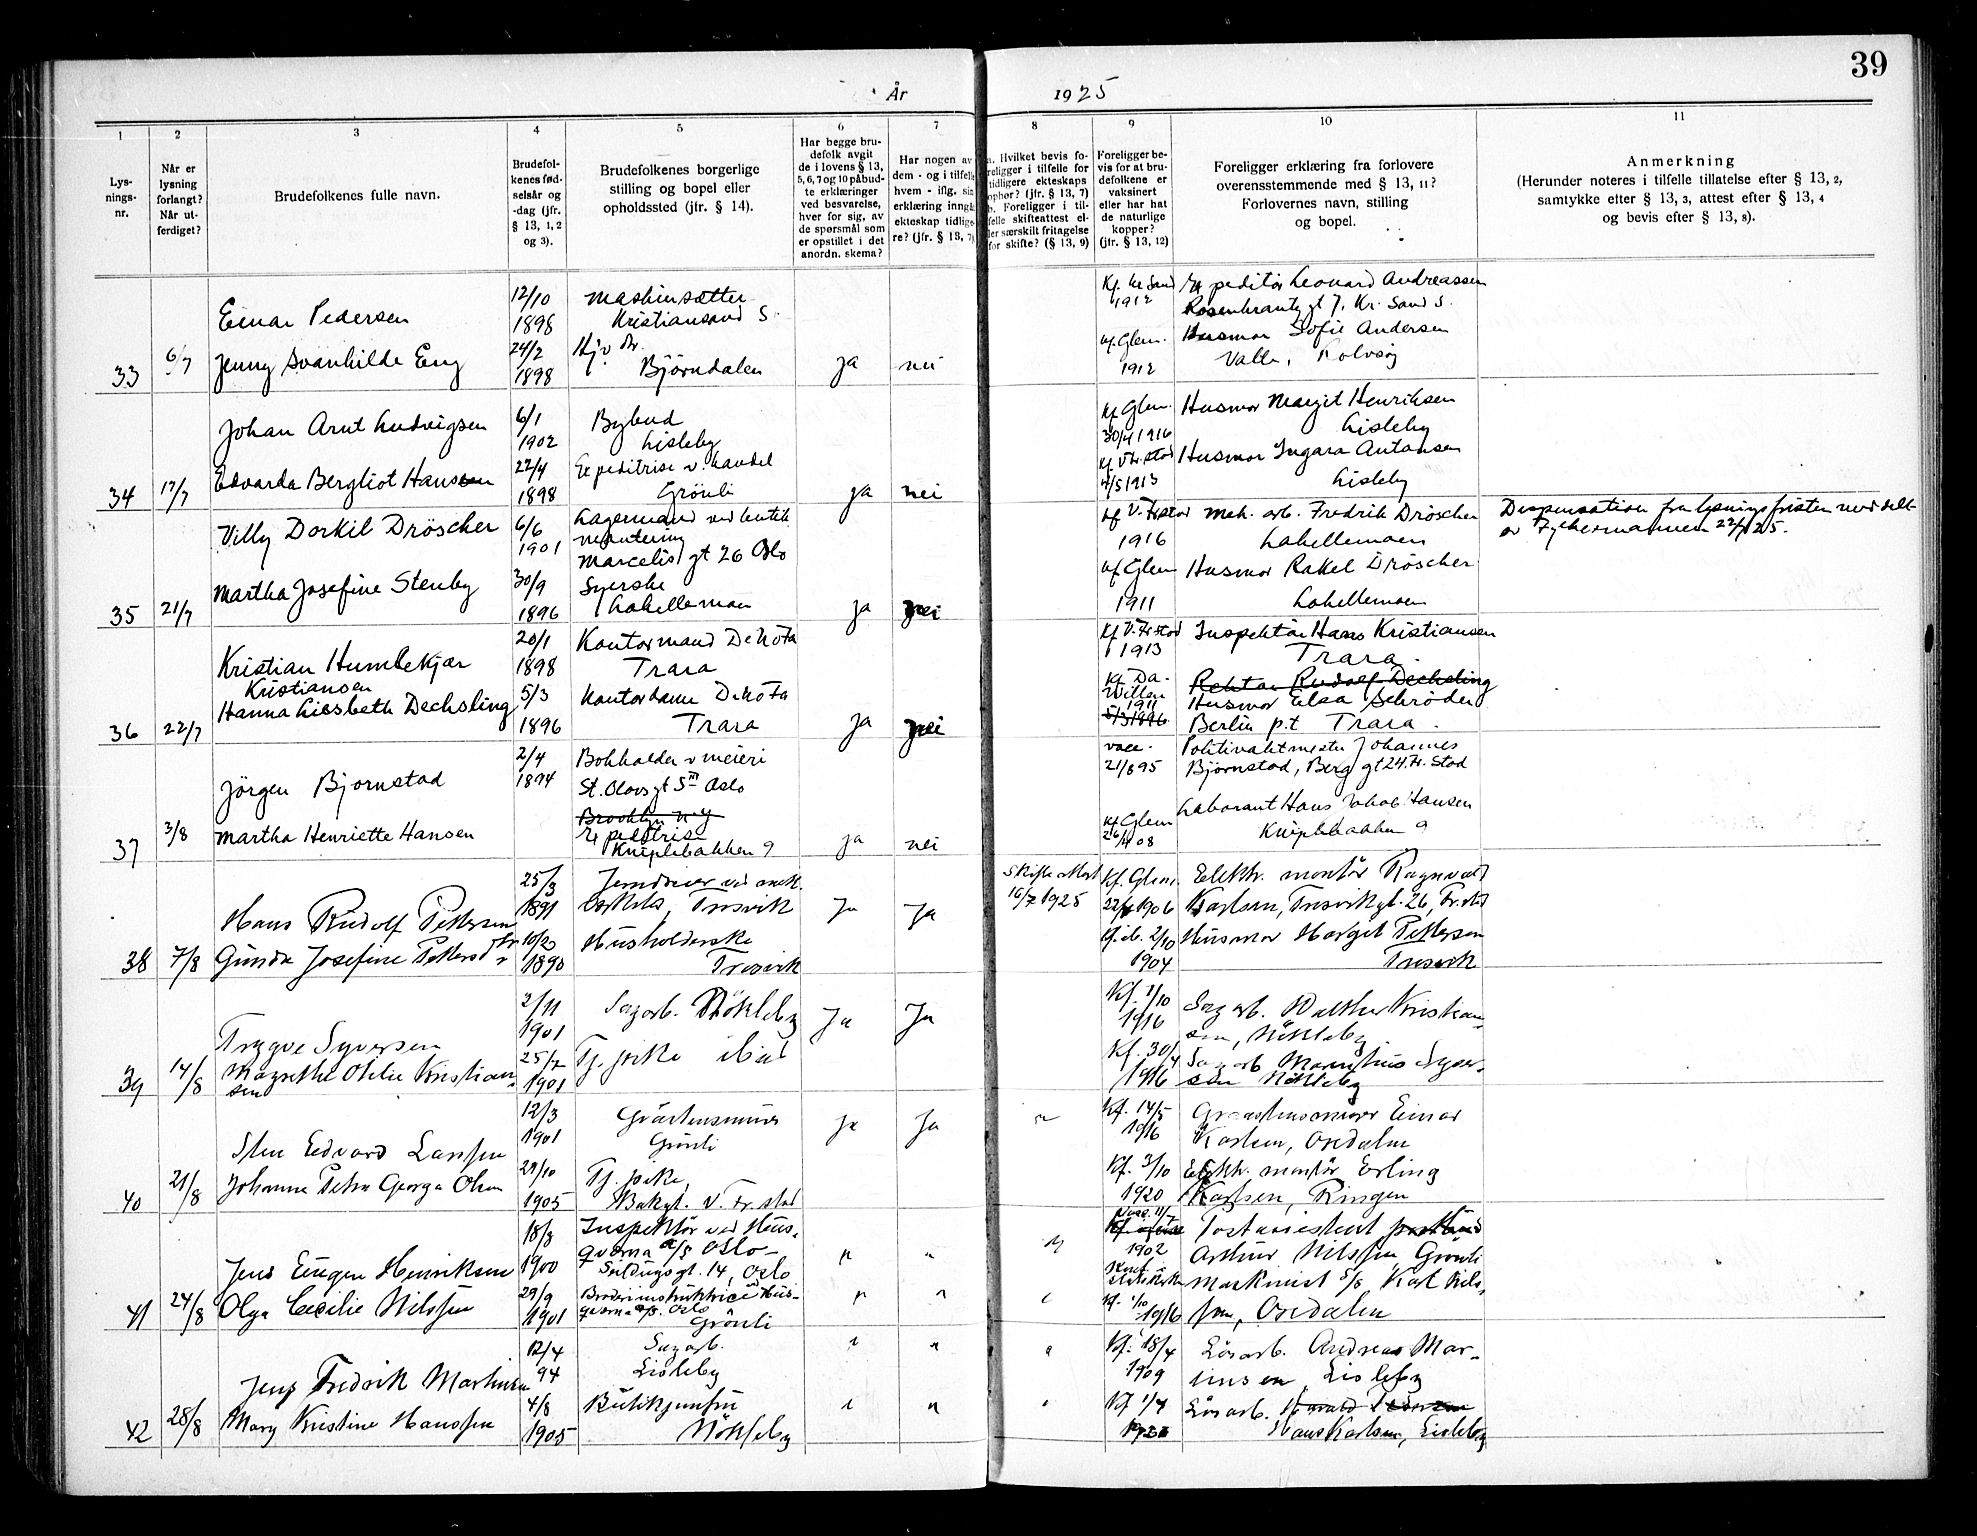 39
År 1925
1 2 3 4 5 6 7 8 9 10 11
Lys-
nings-
nr.
Når er
lysning
forlangt?
Når ut-
ferdiget?
Brudefolkenes fulle navn.
Brudefol-
kenes fød-
selsår og
-dag (jfr.
§ 13, 1, 2
og 3).
Brudefolkenes borgerlige
stilling og bopel eller
opholdssted (jfr. § 14).
Har begge bru-
defolk avgit
de i lovens § 13,
5, 6, 7 og 10 påbud-
te erklæringer
ved besvarelse,
hver for sig, av
de spørsmål som
er opstillet i det
anordn. skema?
Har nogen av
dem - og i tilfelle
hvem - iflg. sin
erklæring inngå
ekteskap tidlige-
re? (jfr. § 13, 7)
a. Hvilket bevis fo-
religger i tilfelle for
tidligere ekteskaps
ophør? (jfr. § 13, 7)
b. Foreligger i til-
felle skifteattest el-
ler særskilt fritagelse
for skifte? (§ 13, 9)
Foreligger be-
vis for at bru-
defolkene er
vaksinert
eller har hat
de naturlige
kopper?
(jfr. § 13, 12)
Foreligger erklæring fra forlovere
overensstemmende med § 13, 11?
Forlovernes navn, stilling
og bopel.
Anmerkning
(Herunder noteres i tilfelle tillatelse efter § 13, 2,
samtykke efter § 13, 3, attest efter § 13, 4
og bevis efter § 13, 8).
Einar Pedersen 12/10 1898 Maskinsætter Kristiansand S. Kf. Kr Sand 1912 Expeditør Leonard Andreassen
Rosenkrantz gt 7. Kr. Sand S.
33 6/7 Jenny Svanhilde Eng 24/2 1898 Björndalen ja nei Kf. Glem. 1912 Husmor Sofie Andersen
Valle, Rolvsøy
Johan Arnt Ludvigsen 6/1 1902 Bybud Lisleby Kf Glem. 30/4 1916 Husmor Margit Henriksen
Lisleby
34 17/7 Edvarda Bergliot Hansen 22/4 1898 Expeditrise v. handel Grönli ja nei Kf V Fr.stad 4/5 1913 Husmor Ingara Antonsen
Lisleby
Villy Dorkil Dröscher 6/6 1901 Lagermand ved
Marcelis gt 26 Oslo Kf V. Frstad 1916 Mek. arb. Fredrik Dröscher
Labellemoen
Dispensation fra lysningsfristen meddelt
av Fylkesmannen 22/7 25.
35 21/7 Martha Josefine Stenby 30/9 1896 Syerske
Labellemoen ja nei Kf Glem 1911 Husmor Rakel Dröscher
Labellemoen
Kristian Humlekjær
Kristiansen 20/1 1898 Kontormand DeNoFa
Trara Kf V. Fr stad 1913 Inspektör Hans Kristiansen
Trara.
36 22/7 Hanna Liesbeth Dechsling 5/3 1896 Kontordame DeNoFa
Trara ja nei 1911 5/3 1896 Rektor Rudolf Dechsling
Husmor Elsa Schröder
Berlin p.t Trara.
Jörgen Bjornstad 2/4 1894 Bokholder v meieri
St. Olavs gt 5 III Oslo vacc. 21/8 95 Politivaktmester Johannes
Bjornstad, Berg gt 24. Fr. Stad
37 3/8 Martha Henriette Hansen Brooklyn N.Y
Expeditrise
Kniplebakken 9 ja nei Kf Glem 26/4 08 Laborant Hans Jakob Hansen
Kniplebakken 9
Hans Rudolf Pettersen 25/3 1891 Jerndreier ved mek.
Trosvik Ja Ja Skifteattest 16/7 1925 Kf. Glem. 22/4 1906 Elektr. montör Ragnvald
Karlsen, Trosvikgt. 26, Fr.stad
38 7/8 Gunda Josefine Petters dtr 10/23 1890 Husholderske
Trosvik Kf. ib. 2/10 1904 Husmor Margit Pettersen
Trosvik
Trygve Syversen 2/11 1901 Sagarb. Nökleby Ja Ja Kf. 1/10 1916 Sagarb. Walther Kristian-
sen, Nökleby
39 14/8 Margrethe Otilie Kristian-
sen 25/7 1901 Tj. pike ibid Kf. 30/4 1916 Sagarb Syver-
sen Nökleby
Sten Edvard Larssen 12/3 1901 Gråstensminer
Grönli Ja Ja Kf. 14/5 1916 Gråstensminer Einar
Karlsen, Oredalen
40 21/8 Johanne Petra Georga Olsen 29/10 1905 Tj. pike,
Bakgt. V. Fr. stad Kf. 3/10 1920 Elektr. montör Erling
Karlsen, Ringen
Jens Eugen Henriksen 18/8 1900 Inspektör ved Hus-
qvarna A/S Oslo
gt. 14, Oslo " " " Vacc. 11/7 1902 Postassistent
Arthur Nilssen Grönli
41 24/8 Olga Cecilie Nilssen 29/9 1901 Broderiinstruktrice ved Hus-
qvarna A/S. Oslo
Grönli " " " Kf. 1/10 1916 Maskinist S/S Karl Nils-
sen, Oredalen
Jens Fredrik Martinsen 12/4 94 Sagarb.
Lisleby " " " Kf. 18/4 1909 Lösarb. Andreas Mar-
tinsen, Lisleby
42 28/8 Mary Kristine Hanssen 4/8 1905 Butikjomfru
Nökleby " " " Kf 1/4 Lösarb. Harald Pedersen
Hans Karlsen, Lisleby